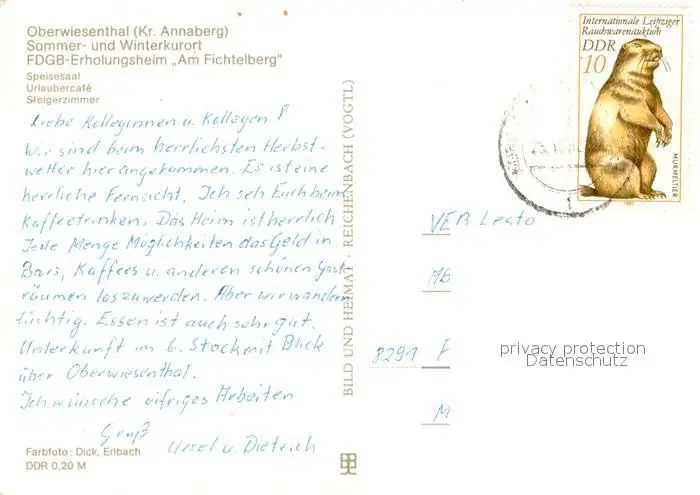 Oberwiesenthal (Kr. Annaberg)
Sommer- und Winterkurort
FDGB-Erholungsheim „Am Fichtelberg"
Speisesaal
Urlaubercafé
Steigerzimmer
Liebe Kolleginnen u. Kollegen!
Wir sind beim herrlichsten Herbst-
wetter hier angekommen. Es ist eine
herrliche Fernsicht. Ich seh Euch beim
Kaffeetrinken. Das Heim ist herrlich
Jede Menge Möglichkeiten das Geld in
Bars, Kaffees u. anderen schönen Gast-
räumen loszuwerden. Aber wir wandern
tüchtig. Essen ist auch sehr gut.
Unterkunft im 6. Stock mit Blick
über Oberwiesenthal.
Ich wünsche eifriges Arbeiten
Gruß
Ursel u. Dietrich
Farbfoto: Dick, Erlbach
DDR 0,20 M
BILD UND HEIMAT · REICHENBACH (VOGTL)
Internationale Leipziger
Rauchwarenauktion
DDR
10
MURMELTIER
1982
VEB
8291
privacy protection
Datenschutz